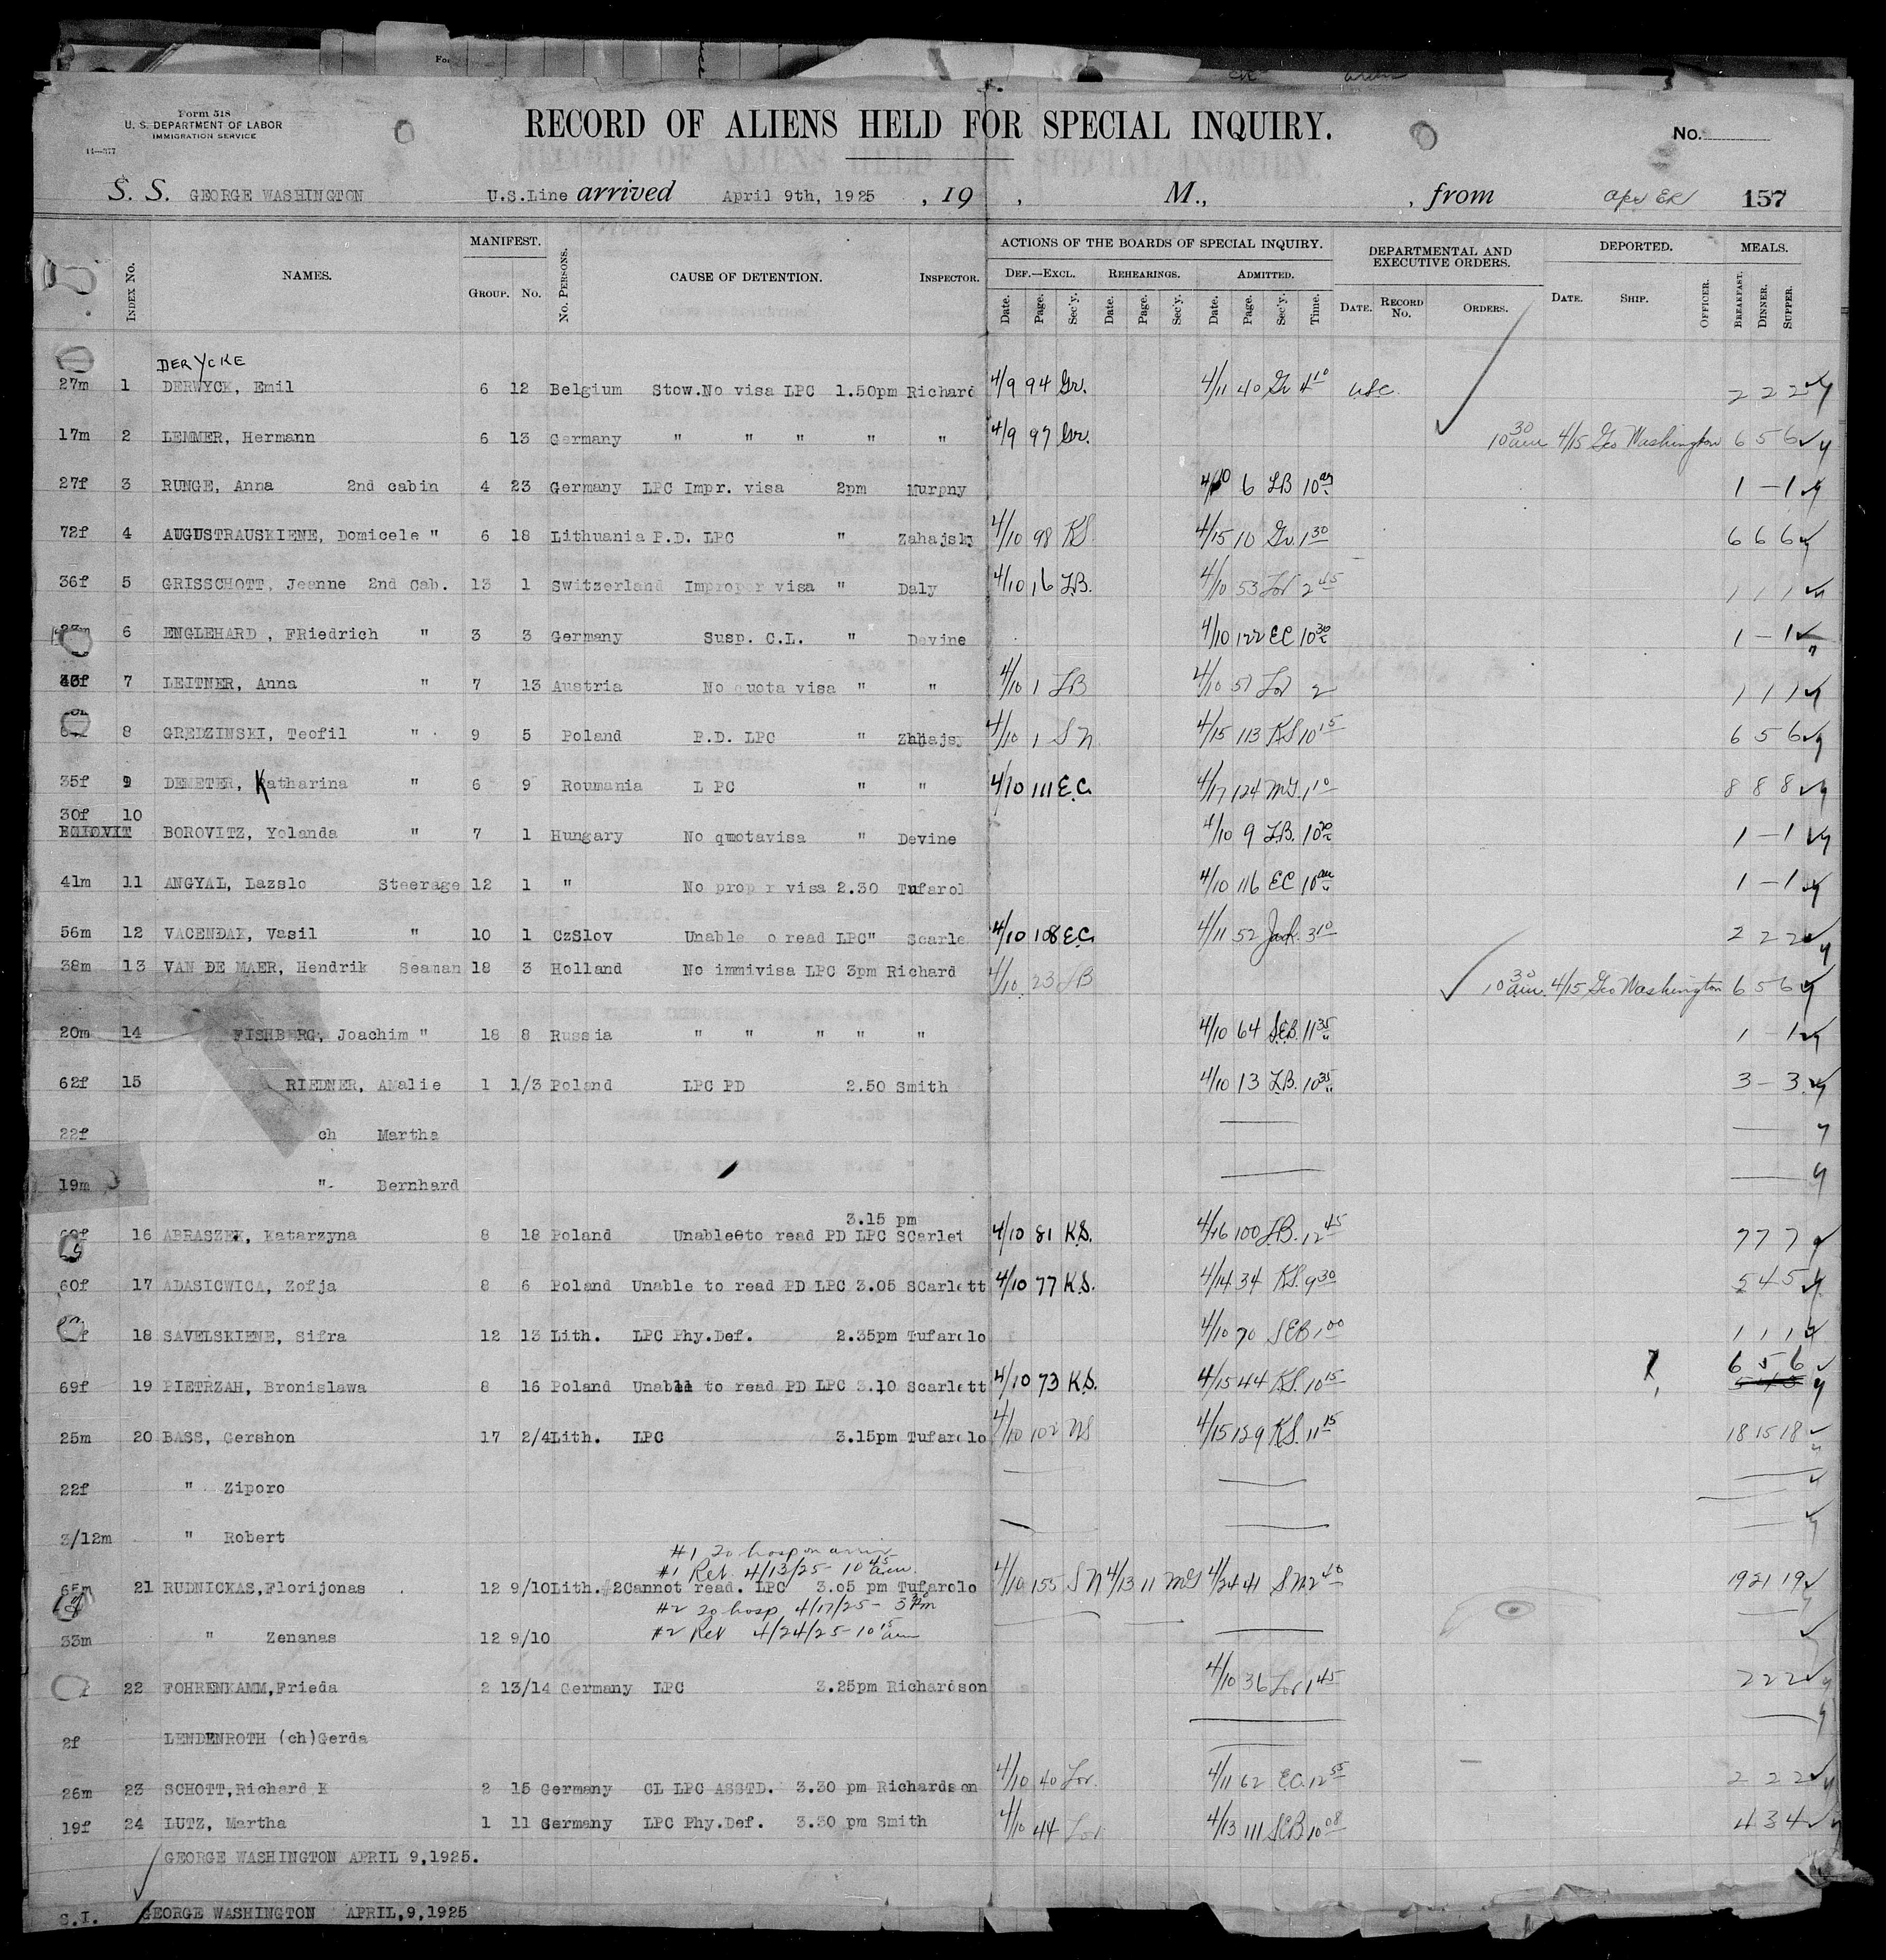 Form 518
U. S. DEPARTMENT OF LABOR
IMMIGRATION SERVICE
14—377
RECORD OF ALIENS HELD FOR SPECIAL INQUIRY.
No.
S. S. GEORGE WASHINGTON U.S.Line arrived April 9th, 1925 , 19 , M., , from 157
INDEX No. NAMES. MANIFEST. GROUP. No. No. PERSONS. CAUSE OF DETENTION. INSPECTOR. ACTIONS OF THE BOARDS OF SPECIAL INQUIRY. DEPARTMENTAL AND EXECUTIVE ORDERS. DEPORTED. MEALS.
DEF.—EXCL. REHEARINGS. ADMITTED.
Date. Page. Sec'y. Date. Page. Sec'y. Date. Page. Sec'y. Time. DATE. RECORD No. ORDERS. DATE. SHIP. OFFICER. BREAKFAST. DINNER. SUPPER.
DERYCKE
27m 1 DERWYCK, Emil 6 12 Belgium Stow.No visa LPC 1.50pm Richard 4/9 94 Gr. 4/11 40 Gr 4 10 USC 2 2 2
17m 2 LEMMER, Hermann 6 13 Germany " " " " " 4/9 97 Gr. 10 30 am 4/15 Geo Washington 6 5 6
27f 3 RUNGE, Anna 2nd cabin 4 23 Germany LPC Impr. visa 2pm Murphy 4/10 6 LB 10 1 – 1
72f 4 AUGUSTRAUSKIENE, Domicele " 6 18 Lithuania P.D. LPC " Zahajsky 4/10 98 KS 4/15 10 Gr. 1 30 6 6 6
36f 5 GRISSCHOTT, Jeanne 2nd Cab. 13 1 Switzerland Improper visa " Daly 4/10 16 LB. 4/10 53 Lor 2 45 1 1 1
6 ENGLEHARD , FRiedrich " 3 3 Germany Susp. C.L. " Devine 4/10 122 EC 10 30 1 – 1
7 LEITNER, Anna " 7 13 Austria No quota visa " " 4/10 1 LB 4/10 57 Lor 2 1 1 1
8 GREDZINSKI, Teofil " 9 5 Poland P.D. LPC " Zhhajsy 4/10 1 SN 4/15 113 KS 10 15 6 5 6
35f 9 DEMETER, Katharina " 6 9 Roumania L PC " " 4/10 111 E.C. 4/17 124 MG. 1 10 8 8 8
30f 10
BOROVITZ, Yolanda " 7 1 Hungary No quotavisa " Devine 4/10 9 LB. 10 30 1 – 1
41m 11 ANGYAL, Lazslo Steerage 12 1 " No prop r visa 2.30 Tufarol 4/10 116 EC 10 1 – 1
56m 12 VACENDAK, Vasil " 10 1 CzSlov Unable o read LPC" Scarle 4/10 108 E.C. 4/11 52 Jack. 3 10 2 2 2
38m 13 VAN DE MAER, Hendrik Seaman 18 3 Holland No immivisa LPC 3pm Richard 4/10 23 LB 10 30 am. 4/15 Geo Washington 6 5 6
20m 14 FISHBERG, Joachim " 18 8 Russia " " " " " 4/10 64 SEB. 11 35 1 – 1
62f 15 RIEDNER, AMalie 1 1/3 Poland LPC PD 2.50 Smith 4/10 13 LB. 10 35 3 – 3
22f ch Martha
19m " Bernhard
3.15 pm
16 ABRASZEK, Katarzyna 8 18 Poland Unableeto read PD LPC SCarlet 4/10 81 K.S. 4/16 100 LB. 12 45 7 7 7
60f 17 ADASICWICA, Zofja 8 6 Poland Unable to read PD LPC 3.05 SCarlett 4/10 77 K.S. 4/14 34 KS. 9 30 5 4 5
18 SAVELSKIENE, Sifra 12 13 Lith. LPC Phy.Def. 2.35pm Tufarolo 4/10 70 SEB 1 00 1 1 1
6 5 6
69f 19 PIETRZAH, Bronislawa 8 16 Poland Unable to read PD LPC 3.10 Scarlett 4/10 73 K.S. 4/15 44 KS. 10 15
25m 20 BASS, Gershon 17 2/4Lith. LPC 3.15pm Tufarolo 4/10 102 NS 4/15 129 KS. 11 15 18 15 18
22f " Ziporo
3/12m " Robert
#1 To hosp on arriv
#1 Ret. 4/13/25 – 10 45 am.
65m 21 RUDNICKAS,Florijonas 12 9/10Lith. #2Cannot read. LPC 3.05 pm Tufarolo 4/10 155 SN 4/13 11 MG 4/24 41 SN 2 40 19 21 19
#2 To hosp. 4/17/25 – 3 pm
33m " Zenanas 12 9/10 #2 Ret 4/24/25 – 10 15 am
22 FOHRENKAMM,Frieda 2 13/14 Germany LPC 3.25pm Richardson 4/10 36 Lor 1 45 2 2 2
2f LENDENROTH (ch)Gerda
26m 23 SCHOTT,Richard K 2 15 Germany CL LPC ASSTD. 3.30 pm Richardson 4/10 40 Lor. 4/11 62 E.C. 12 55 2 2 2
19f 24 LUTZ, Martha 1 11 Germany LPC Phy.Def. 3.30 pm Smith 4/10 44 Lor 4/13 111 SEB 10 08 4 3 4
GEORGE WASHINGTON APRIL 9,1925.
S.I. GEORGE WASHINGTON APRIL,9,1925